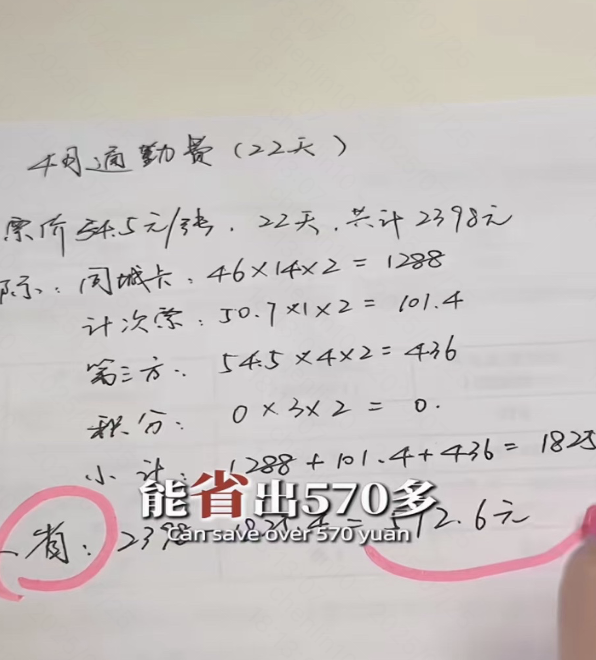 4月通勤费（22天）
票价54.5元/张，22天，共计2398元
际：同城卡：46×14×2=1288
计次票：50.7×1×2=101.4
第三方：54.5×4×2=436
积分：0×3×2=0.
小计：1288+101.4+436=1825
能省出570多
Can save over 570 yuan
省：2398 = 572.6元